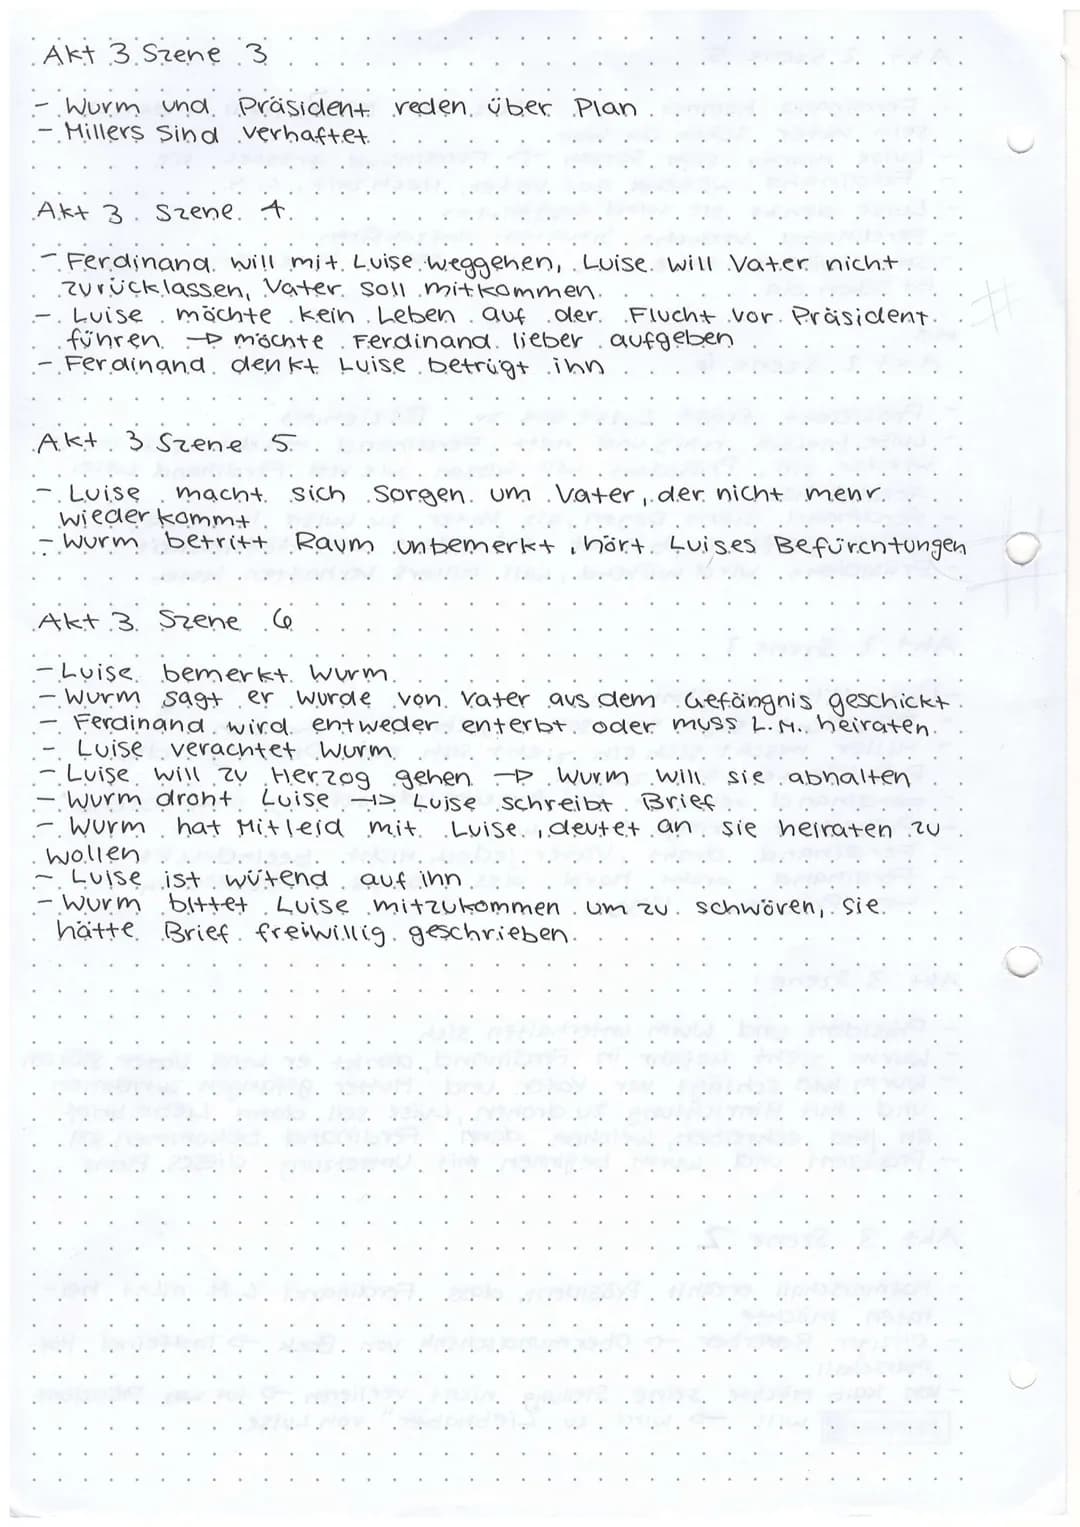 Akt 3 Szene 3
- Wurm und Präsident reden über Plan
- Millers sind verhaftet
Akt 3 Szene 4
- Ferdinand will mit Luise weggehen, Luise will Vater nicht
zurücklassen, Vater soll mitkommen.
- Luise möchte kein Leben auf der Flucht vor Präsident
führen → möchte Ferdinand lieber aufgeben
- Ferdinand denkt Luise betrügt ihn
Akt 3 Szene 5
- Luise macht sich Sorgen um Vater, der nicht mehr
wieder kommt
- Wurm betritt Raum unbemerkt, hört Luises Befürchtungen
Akt 3 Szene 6
- Luise bemerkt Wurm
- Wurm sagt er wurde von Vater aus dem Gefängnis geschickt
- Ferdinand wird entweder enterbt oder muss L.M. heiraten
- Luise verachtet Wurm
- Luise will zu Herzog gehen → Wurm will sie abhalten
- Wurm droht Luise → Luise schreibt Brief
- Wurm hat Mitleid mit Luise, deutet an sie heiraten zu
wollen
- Luise ist wütend auf ihn
- Wurm bittet Luise mitzukommen um zu schwören, sie
hätte Brief freiwillig geschrieben.